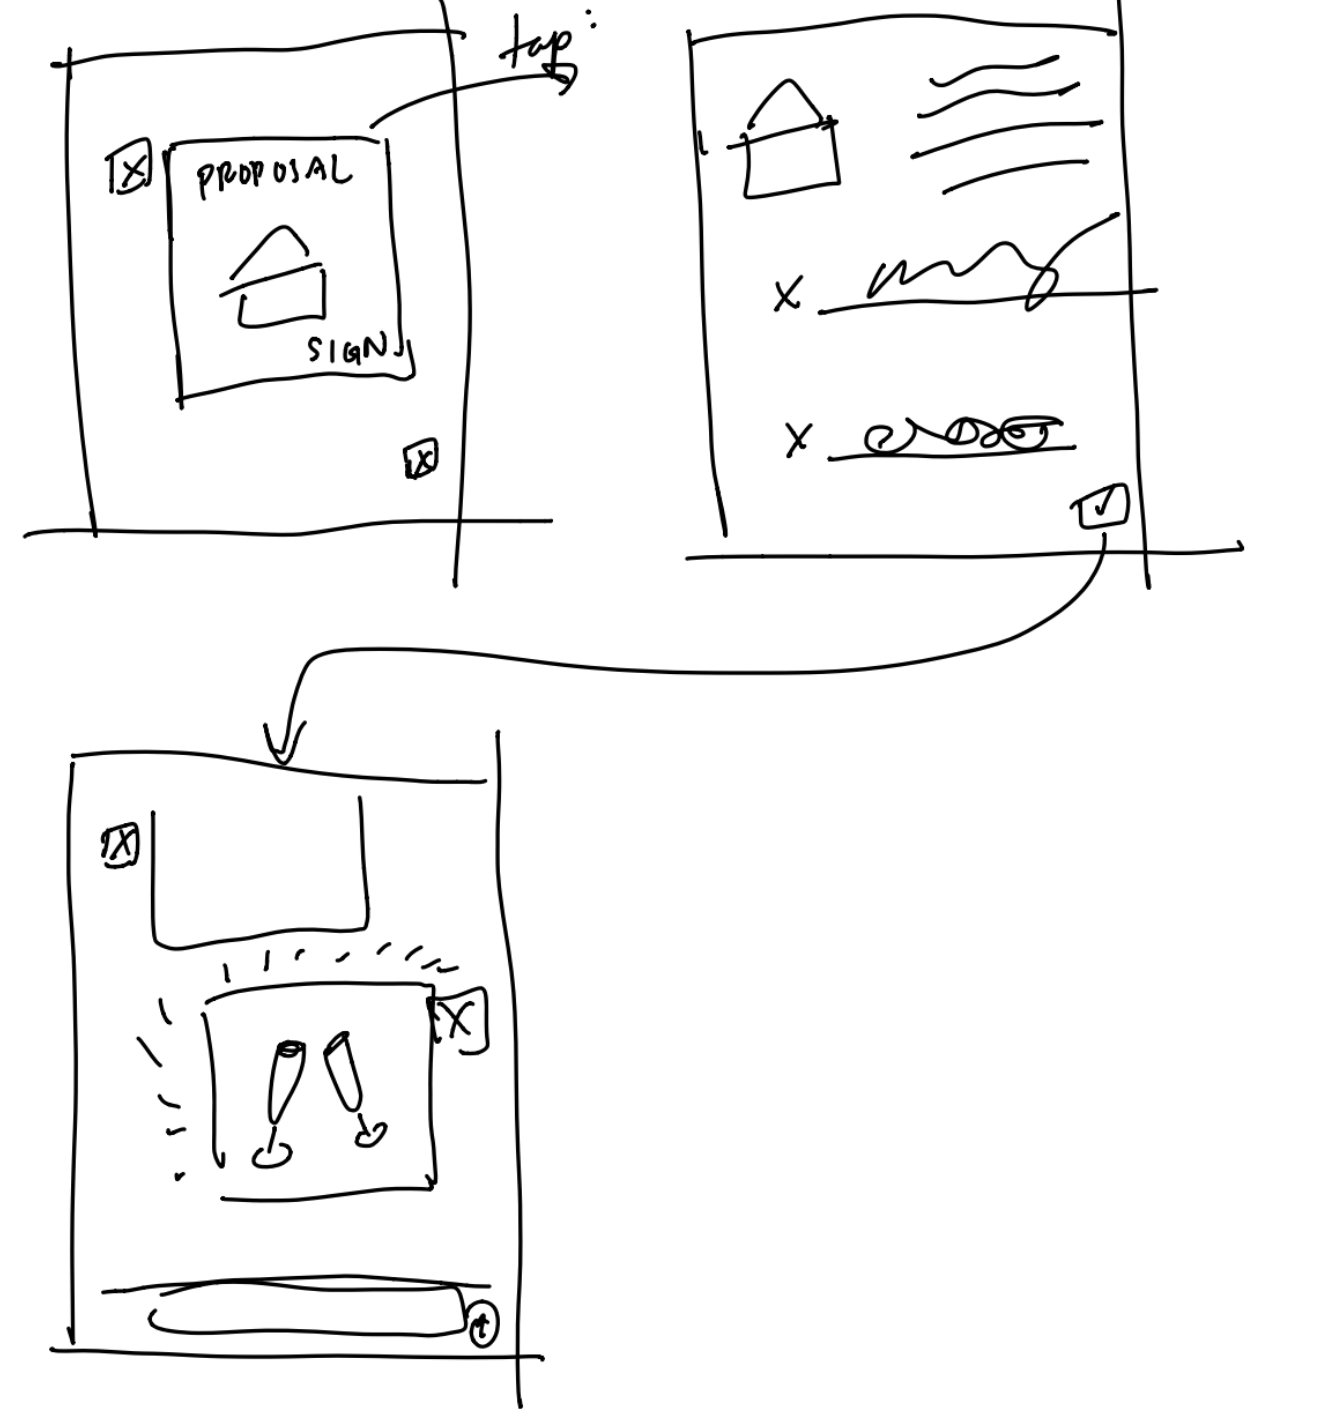 tap:
X
PROPOSAL
SIGN
X
X
X
X
X